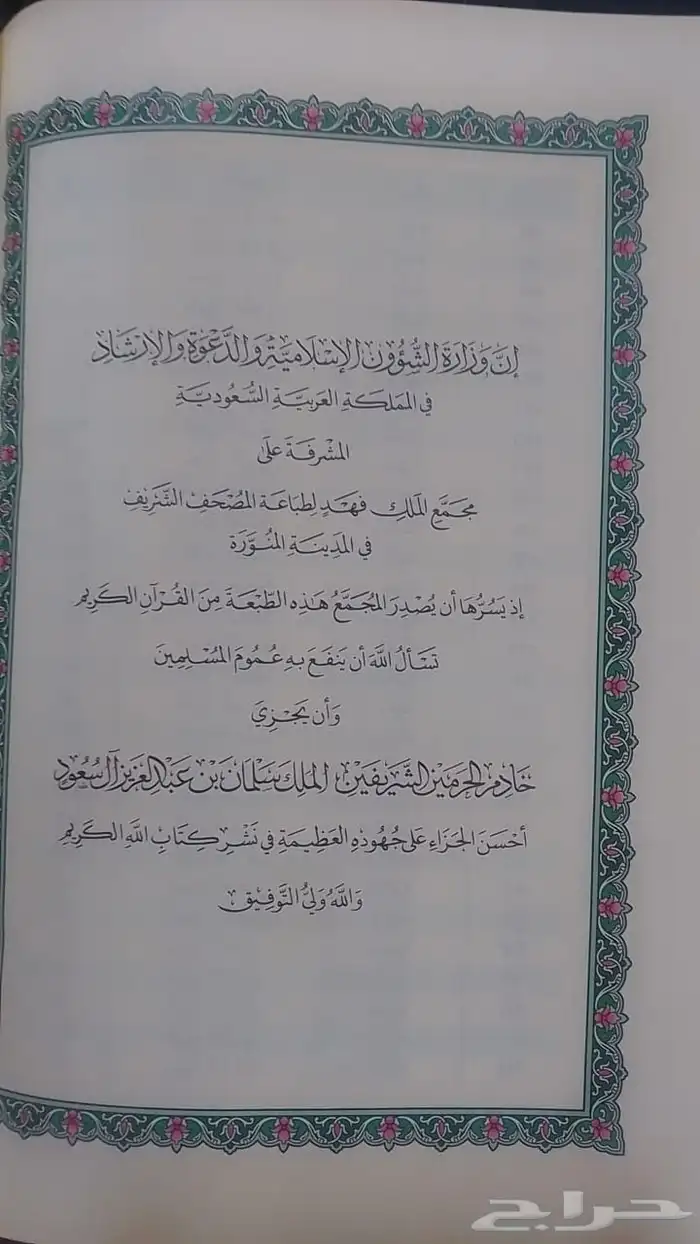 إِنَّ وَزَارَةَ الشُّؤُونِ الإِسْلَامِيَّةِ وَالدَّعْوَةِ وَالإِرْشَادِ
فِي المَمْلَكَةِ العَرَبِيَّةِ السُّعُودِيَّةِ
المُشْرِفَةَ عَلَى
مُجَمَّعِ المَلِكِ فَهْدٍ لِطِبَاعَةِ المُصْحَفِ الشَّرِيفِ
فِي المَدِينَةِ المُنَوَّرَةِ
إِذ يَسُرُّهَا أَن يُصْدِرَ المُجَمَّعُ هَذِهِ الطَّبْعَةَ مِنَ القُرْآنِ الكَرِيمِ
تَسْأَلُ اللَّهَ أَن يَنفَعَ بِهِ عُمُومَ المُسْلِمِينَ
وَأَن يَجْزِيَ
خَادِمَ الحَرَمَيْنِ الشَّرِيفَيْنِ المَلِكَ سَلْمَانَ بْنَ عَبْدِ العَزِيزِ آل سُعُود
أَحْسَنَ الجَزَاءِ عَلَى جُهُودِهِ العَظِيمَةِ فِي نَشْرِ كِتَابِ اللَّهِ الكَرِيمِ
وَاللَّهُ وَلِيُّ التَّوْفِيقِ
حراج